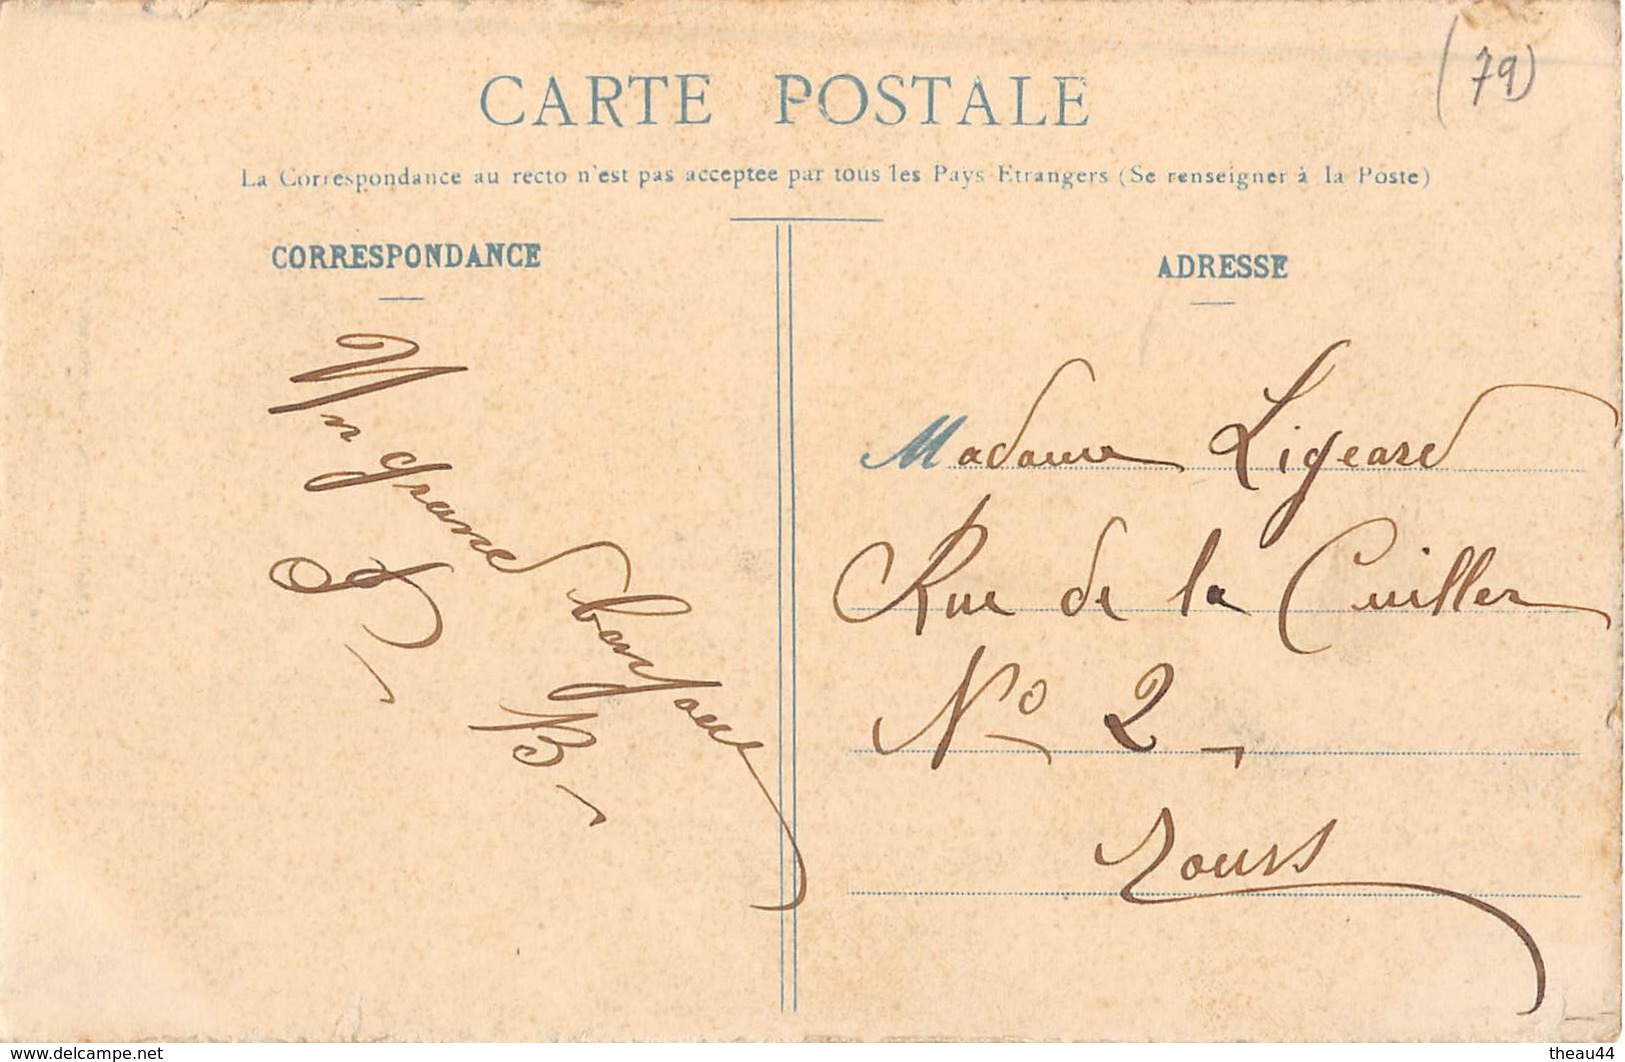 (79)
CARTE POSTALE
La Correspondance au recto n'est pas acceptee par tous les Pays Etrangers (Se renseigner à la Poste)
CORRESPONDANCE
Un grand bonjour
B
ADRESSE
Madame Ligeard
Rue de la Cuiller
No 2
Tours
www.delcampe.net
theau44